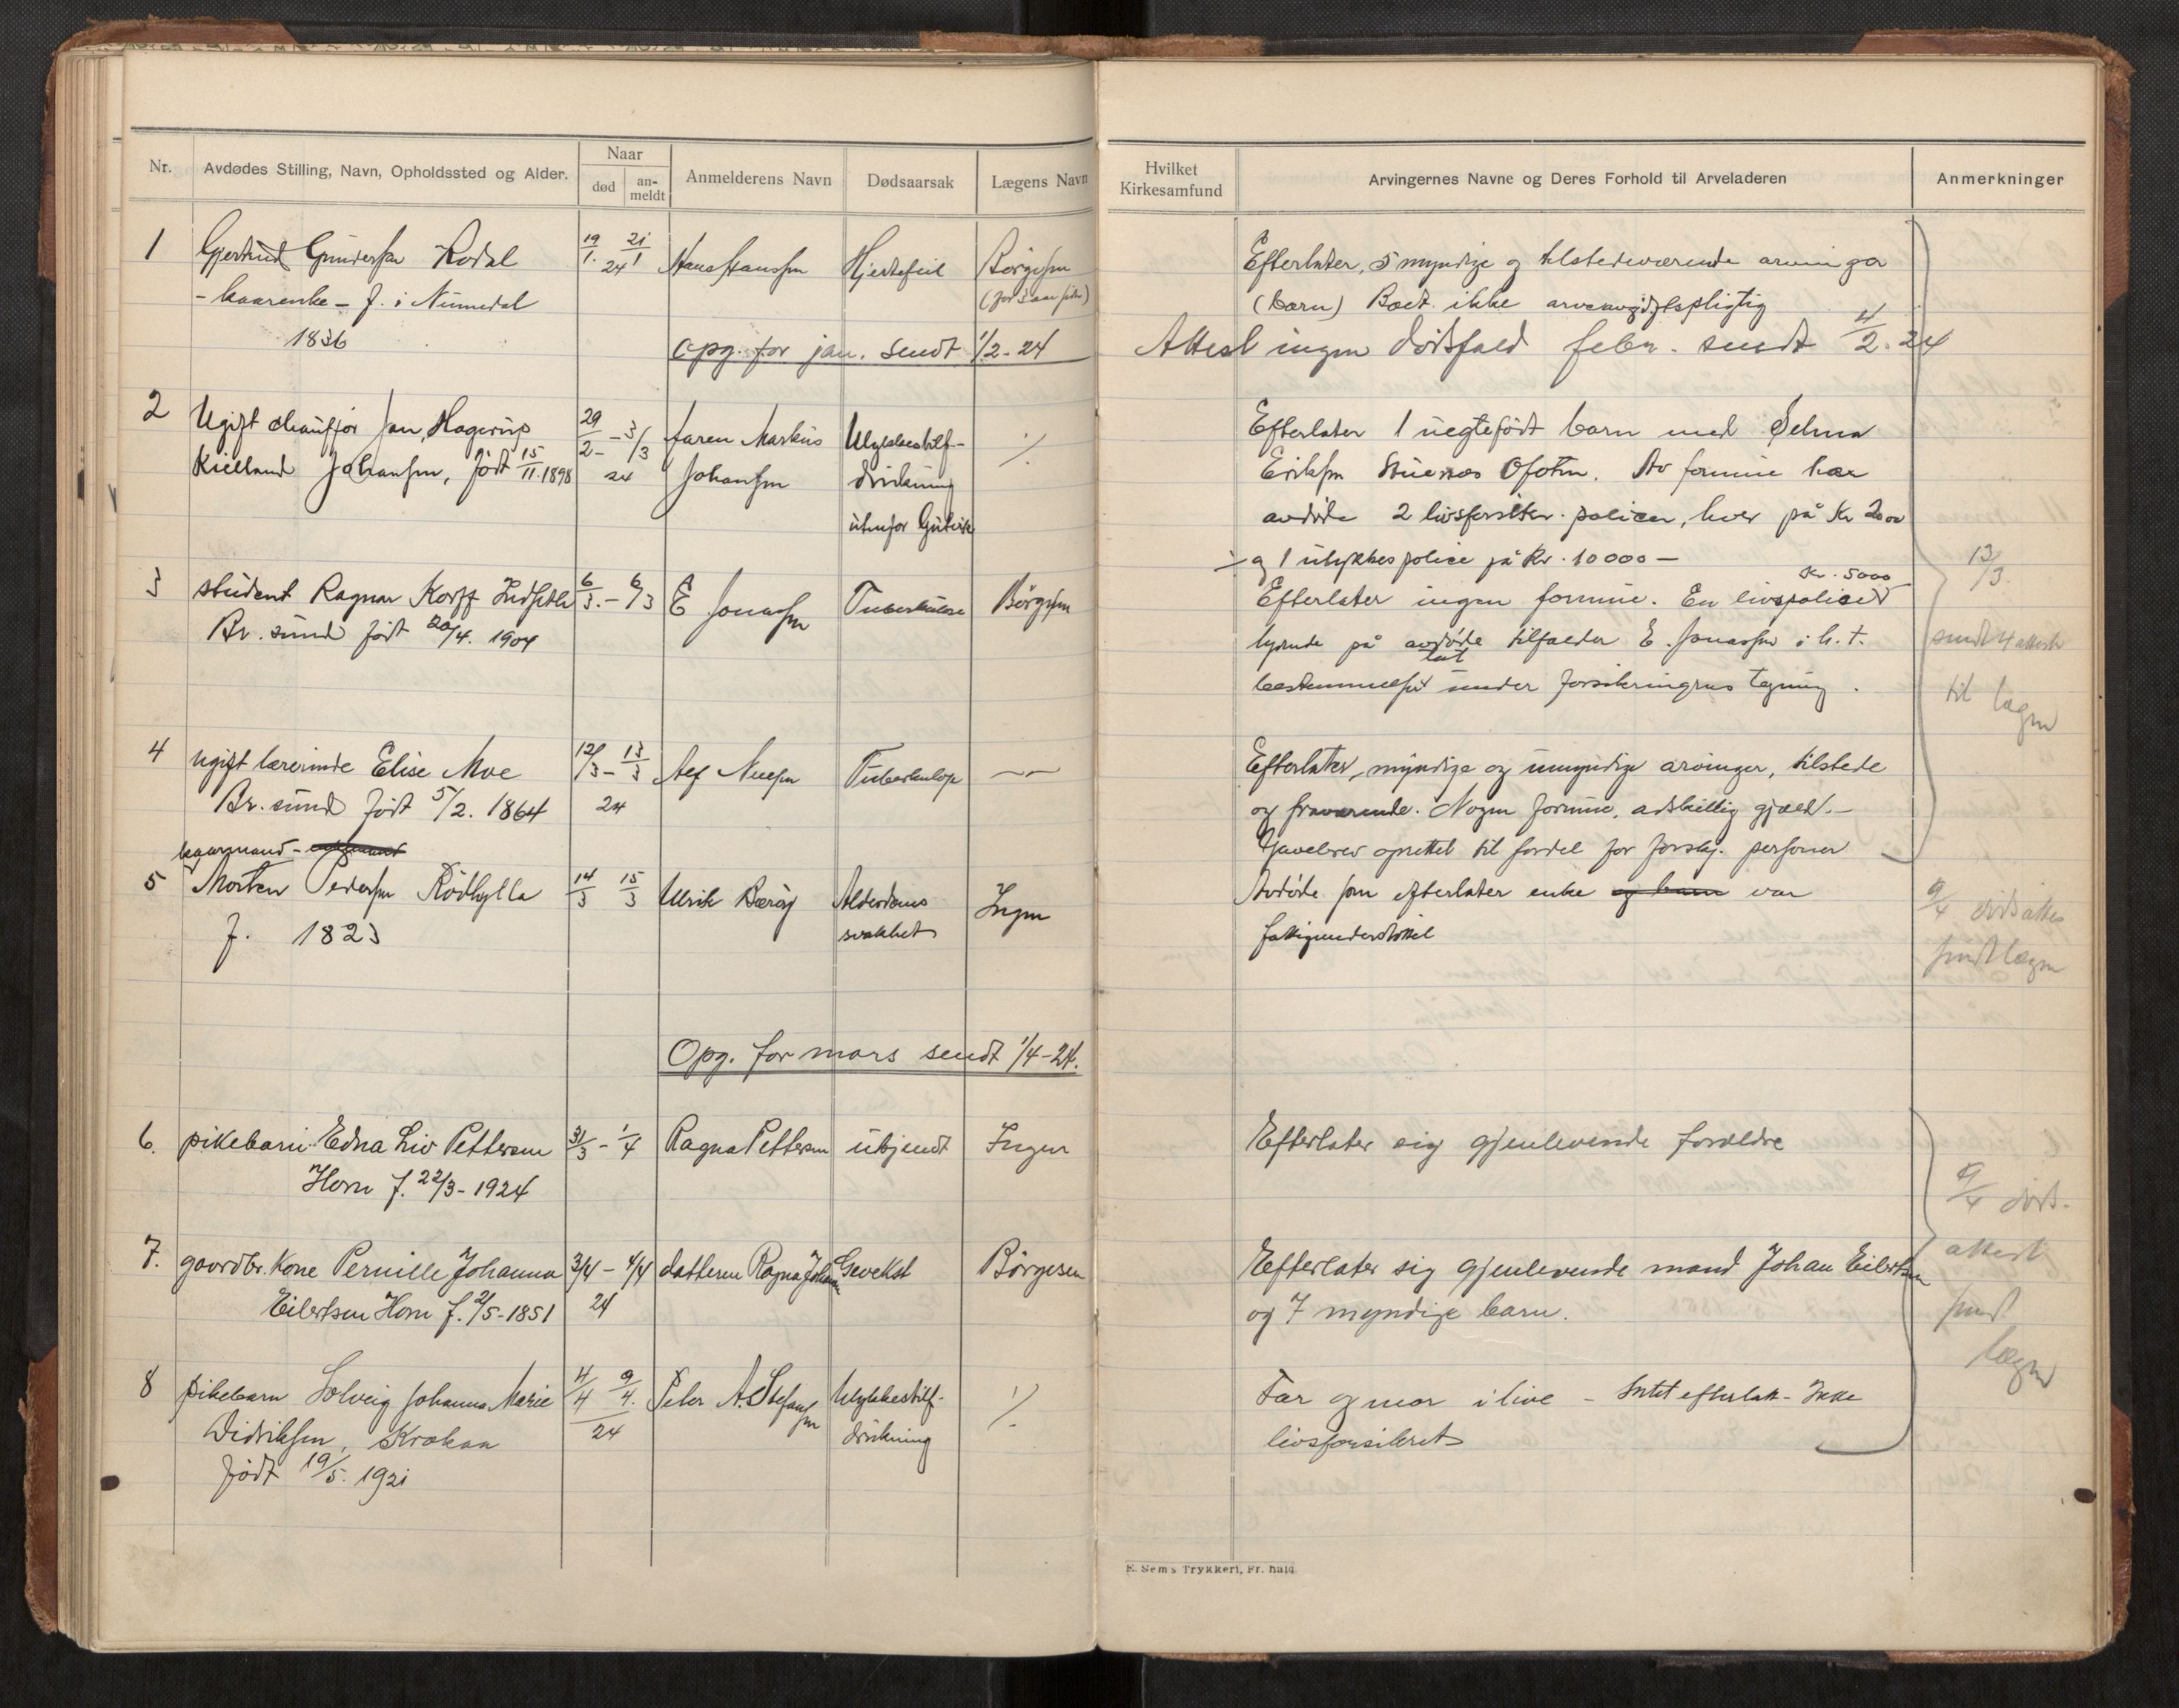 Nr.
Avdødes Stilling, Navn, Opholdssted og Alder.
Naar
død
an-
meldt
Anmelderens Navn
Dødsaarsak
Lægens Navn
Hvilket
Kirkesamfund
Arvingernes Navne og Deres Forhold til Arveladeren
Anmerkninger
1 Gjertrud Gundersen Rodal 19/1. 21/1 Hans Hanssen Hjertefeil Børgesen
- kaarenke - f. i Numedal 24 (for 3 aar siden)
1836
Opg. for jan. sendt 1/2-24
Efterlater, 5 myndige og tilstedeværende arvinger
(barn) Boet ikke arveavgiftspligtig
Attest ingen dødsfald febr. sendt 4/2. 24
2 Ugift chauffør Jan Hagerup 29/2 - 3/3 faren Markus Ulykkestilf- ./.
Kielland Johansen, født 15/11.1898 24 Johansen drukning
utenfor
Efterlater 1 uegtefødt barn med Selma
Eriksen Ofoten. Av formue har
avdøde 2 livsforsikr. policer, hver på Kr 2000
og 1 ulykkespolice på Kr. 10000 -
3 student Ragnar Korff Indseth 6/3. - 6/3 E Jonassen Tuberkulose Børgesen
Br. sund født 20/4. 1904
Kr. 5000
Efterlater ingen formue. En livspolice
lydende på avdøde tilfalder E. Jonassen i h. t.
tat
bestemmelse under forsikringens tegning.
13/3.
sendt 4 attester
til lægen
4 ugift lærerinde Elise Moe 12/3 - 13/3 Alf Tuberkulose -〃-
Br. sund født 5/2. 1864 24
Efterlater, myndige og umyndige arvinger, tilstede
og fraværende. Nogen formue, adskillig gjæld. -
Gavebrev oprettet til fordel for forskj. personer
kaarmand -
5 Morten Pedersen Rødhylla 14/3 15/3 Ulrik Bærøy Alderdoms Ingen
f. 1823 svakhet
Avdøde som efterlater enke og barn var
fattigunderstøttet
9/4 dødsattes
sendt lægen
Opg. for mars sendt 1/4-24.
6. pikebarn Edna Liv Pettersen 31/3 - 1/4 Ragna Pettersen ukjendt Ingen
Horn f. 22/3-1924
Efterlater sig gjenlevende forældre
7. gaardbr. kone Pernille Johanna 3/4 - 4/4 datteren Ragna Johansen Gevekst Børgesen
Eilertsen Horn f. 2/5-1851 24
Efterlater sig gjenlevende mand Johan Eilertsen
og 7 myndige barn.
9/4 døds-
attest
sendt
lægen
8 pikebarn Solveig Johanna Marie 4/4 9/4. Peter A. Stefansen Ulykkestilf- ./.
Didriksen, Krokan 24 drukning
født 19/5. 1921
Far og mor i live - Intet efterlatt - Ikke
livsforsikret
E. Sem s Trykkeri, Fr. hald